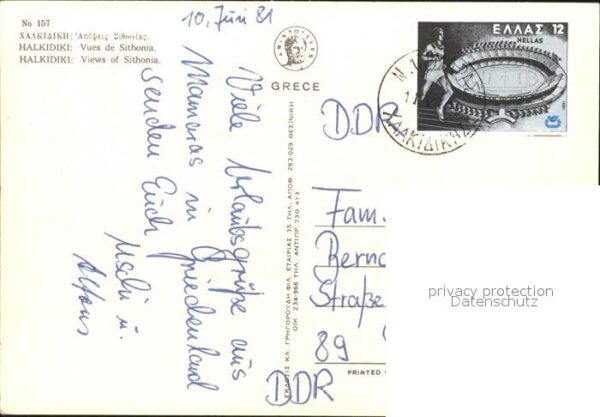 No 157
ΧΑΛΚΙΔΙΚΗ: Ἀπόψεις Σιθωνίας.
HALKIDIKI: Vues de Sithonia.
HALKIDIKI: Views of Sithonia.
10. Juni 81
Viele Urlaubsgrüße aus
Marmaras in Griechenland
senden Euch
Uschi u.
Alfons
GRECE
ΕΚΔΟΣΙΣ ΚΛ. ΓΡΗΓΟΡΟΥΔΗ ΦΙΛ. ΕΤΑΙΡΙΑΣ 35 ΤΗΛ. ΑΠΟΘ 263.029 ΘΕΣ/ΝΙΚΗ
ΟΙΚ. 234-966 ΤΗΛ. ΑΝΤΙΠΡ. 730 473
ΕΛΛΑΣ 12
HELLAS
1981
ΧΑΛΚΙΔΙΚΗΣ
DDR
Fam.
Bernd
Straße
89
DDR
PRINTED
privacy protection
Datenschutz